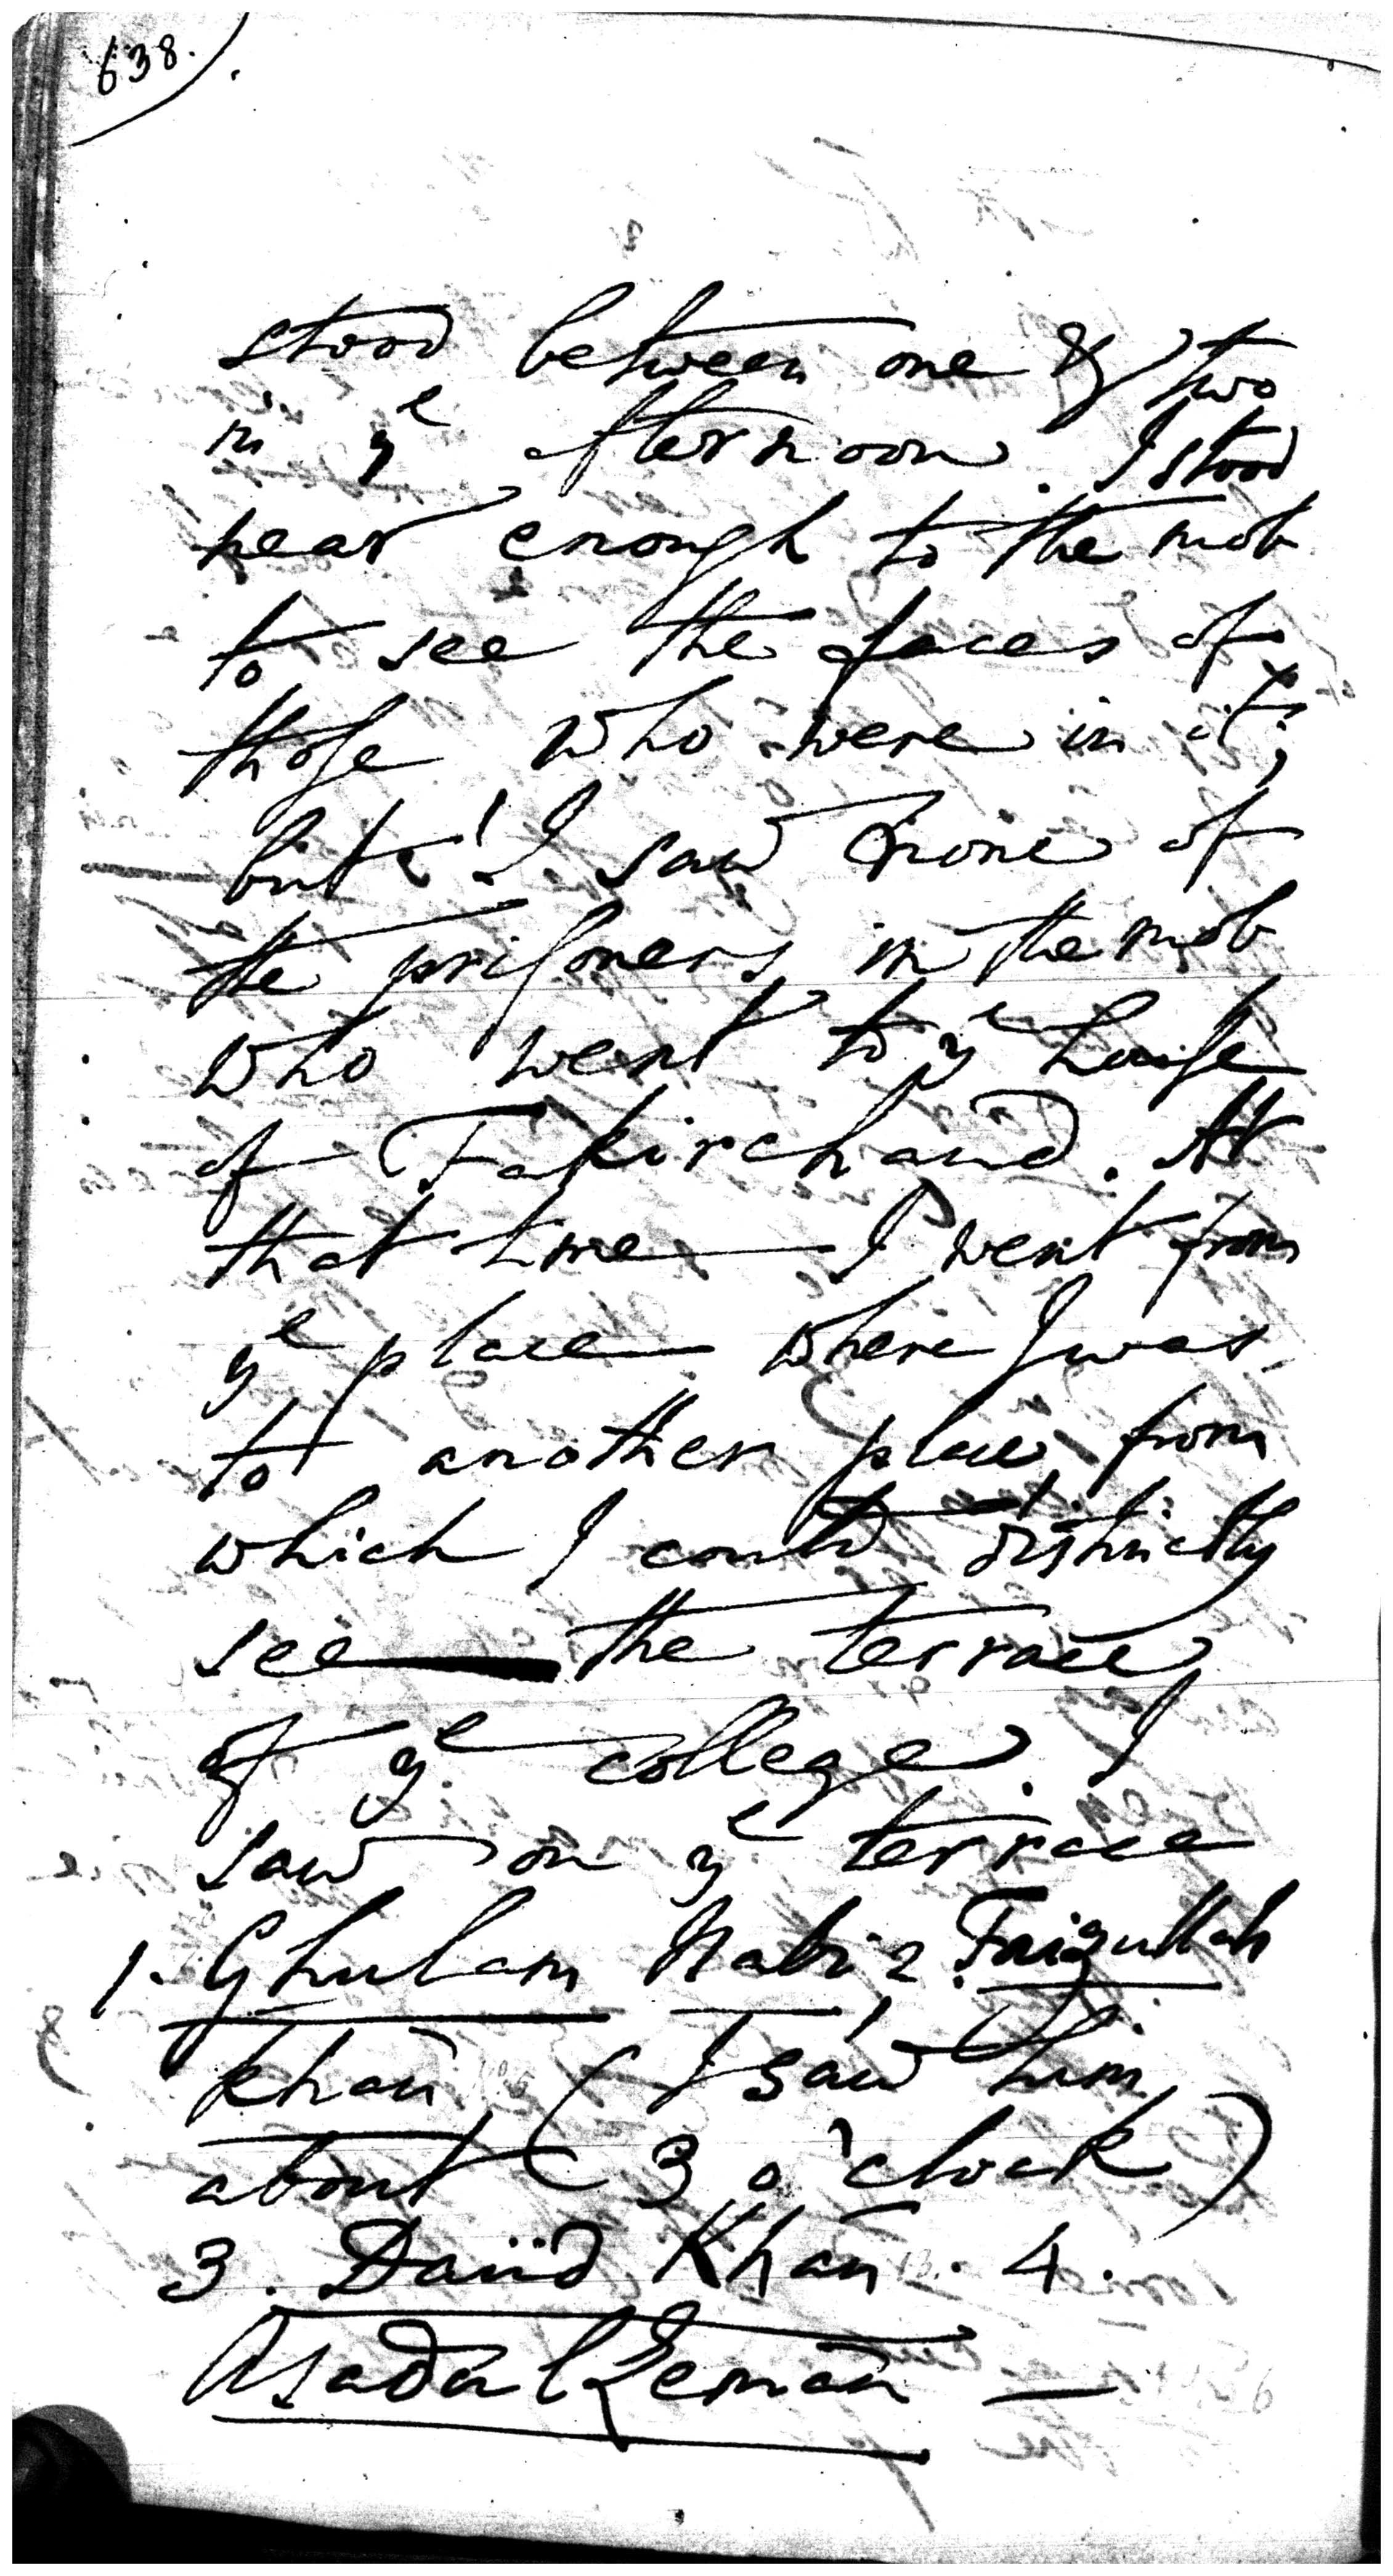 638.
stood between one & two
in ye afternoon. I stood
near enough to the mob
to see the faces of
those who were in it;
but I saw none of
the prisoners in the mob
who went to ye house
of Fakirchand. At
that time I went from
ye place where I was
to another place, from
which I could distinctly
see the terrace
of ye college. I
saw on ye terrace
1. Ghulam Nabi 2. Faizullah
Khan, (I saw him
about 3 o'clock)
3. Daüd Khan. 4.
Asadulzeman —